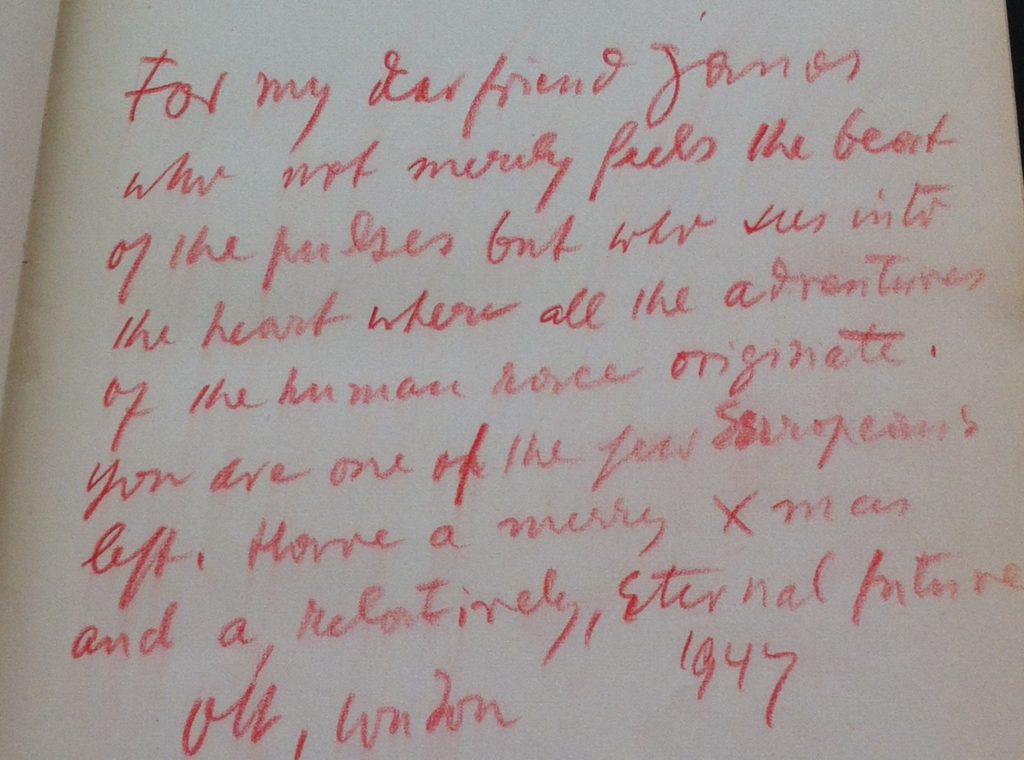 For my dear friend János
who not merely feels the beat
of the pulses but who sees into
the heart where all the adventures
of the human race originate.
You are one of the few Europeans
left. Have a merry Xmas
and a, relatively, Eternal future
1947
London